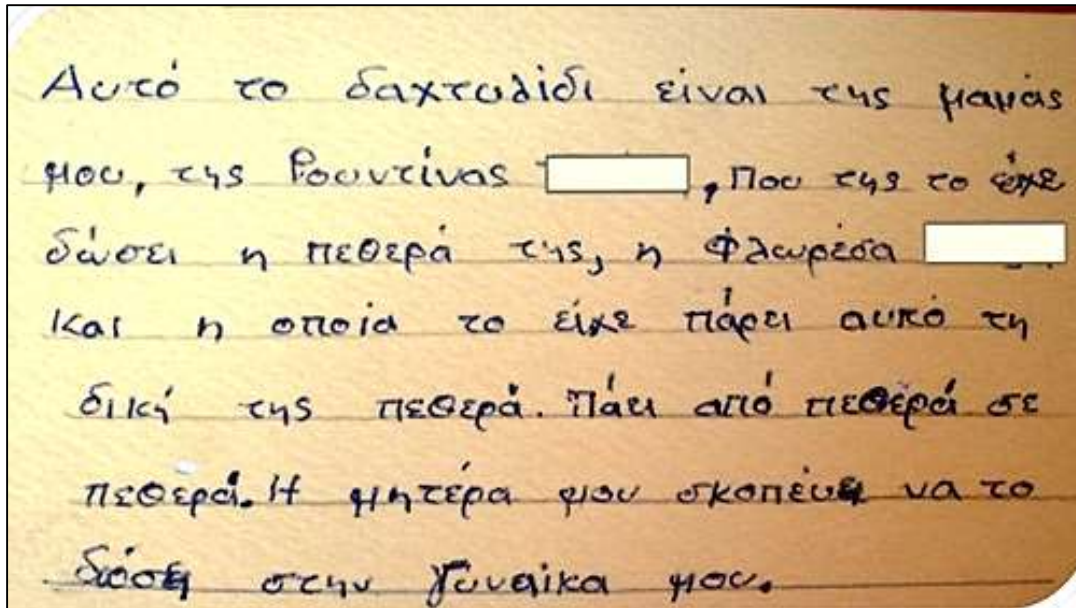 Αυτό το δαχτυλίδι είναι της μαμάς
μου, της Ρουντίνας , που της το είχε
δώσει η πεθερά της, η Φλωρέσα
και η οποία το είχε πάρει από τη
δική της πεθερά. Πάει από πεθερά σε
πεθερά. Η μητέρα μου σκοπεύει να το
δώσει στην γυναίκα μου.